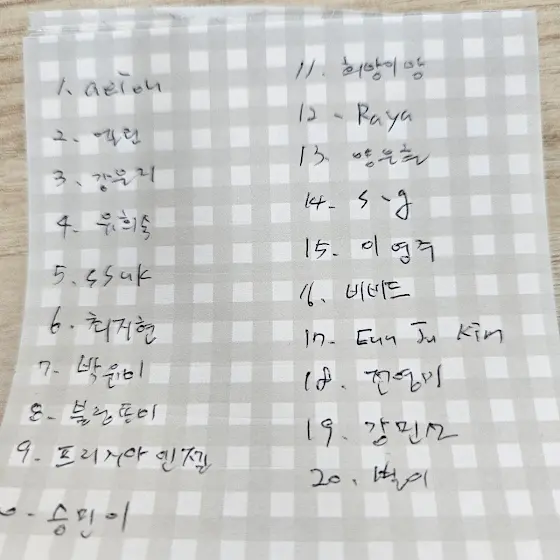 1. aeion
2. 엘린
3. 강윤지
4. 유희숙
5. ssuk
6. 최지현
7. 박윤미
8. 블링똥이
9. 프리지아엔젤
10. 송민이
11. 희망이맘
12. Raya
13.
14. s-g
15. 이영주
16. 비비드
17. Eun Ju Kim
18. 전영미
19. 강민선
20. 벽이